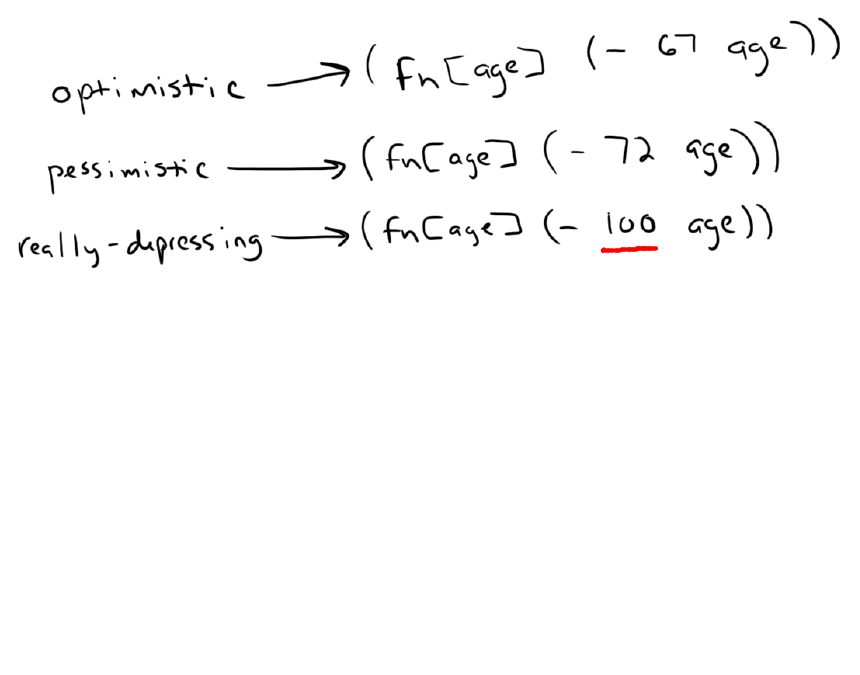 optimistic → (fn[age] (- 67 age))
pessimistic → (fn[age] (- 72 age))
really-depressing → (fn[age] (- 100 age))